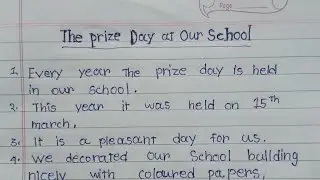 Page
The Prize Day at Our School
1. Every year the prize day is held
in our school.
2. This year it was held on 15th
march.
3. It is a pleasant day for us.
4. We decorated our school building
nicely with coloured papers,